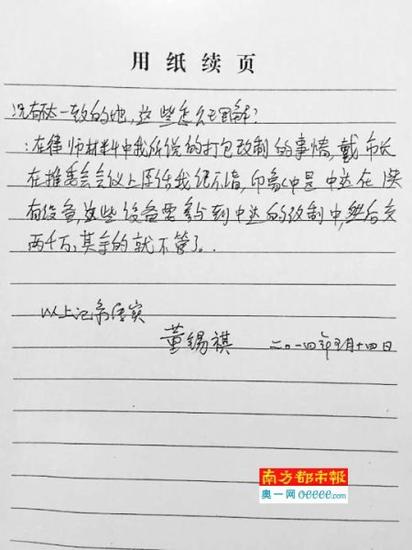 用纸续页
没有达一致的地,这些怎么理解?
:在律师材料中我所说的打包改制的事情,戴市长
在推委会会议上原话我记不清,印象中是中达在
有设备,这些设备要参与到中达的改制中,然后交
两千万,其余的就不管了。
以上记录属实
董锡祺 二〇一四年 月十四日
南方都市报
奥一网oeeee.com